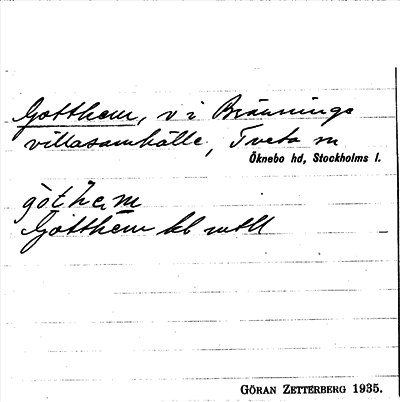 Gotthem, v i Bränninge
villasamhälle, Tveta sn
Öknebo hd, Stockholms l.
gòthem
Gotthem
GÖRAN ZETTERBERG 1935.